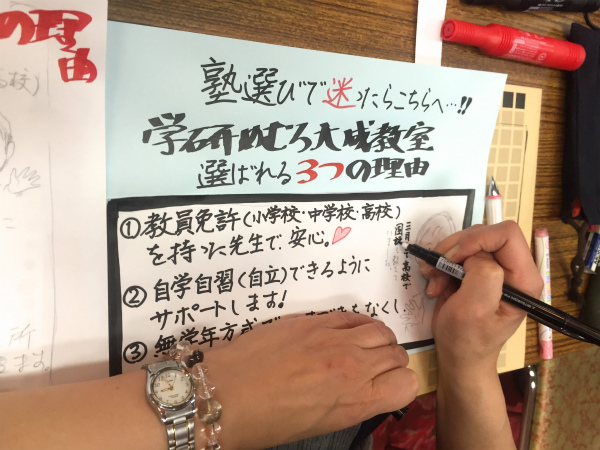 の理由
校)
塾選びで迷ったらこちらへ…!!
学研めむろ大成教室
選ばれる3つの理由
①教員免許(小学校・中学校・高校)
を持った先生で安心。
②自学自習(自立)できるように
サポートします!
③無学年方式で
なくし
三月まで高校で
所
ます。